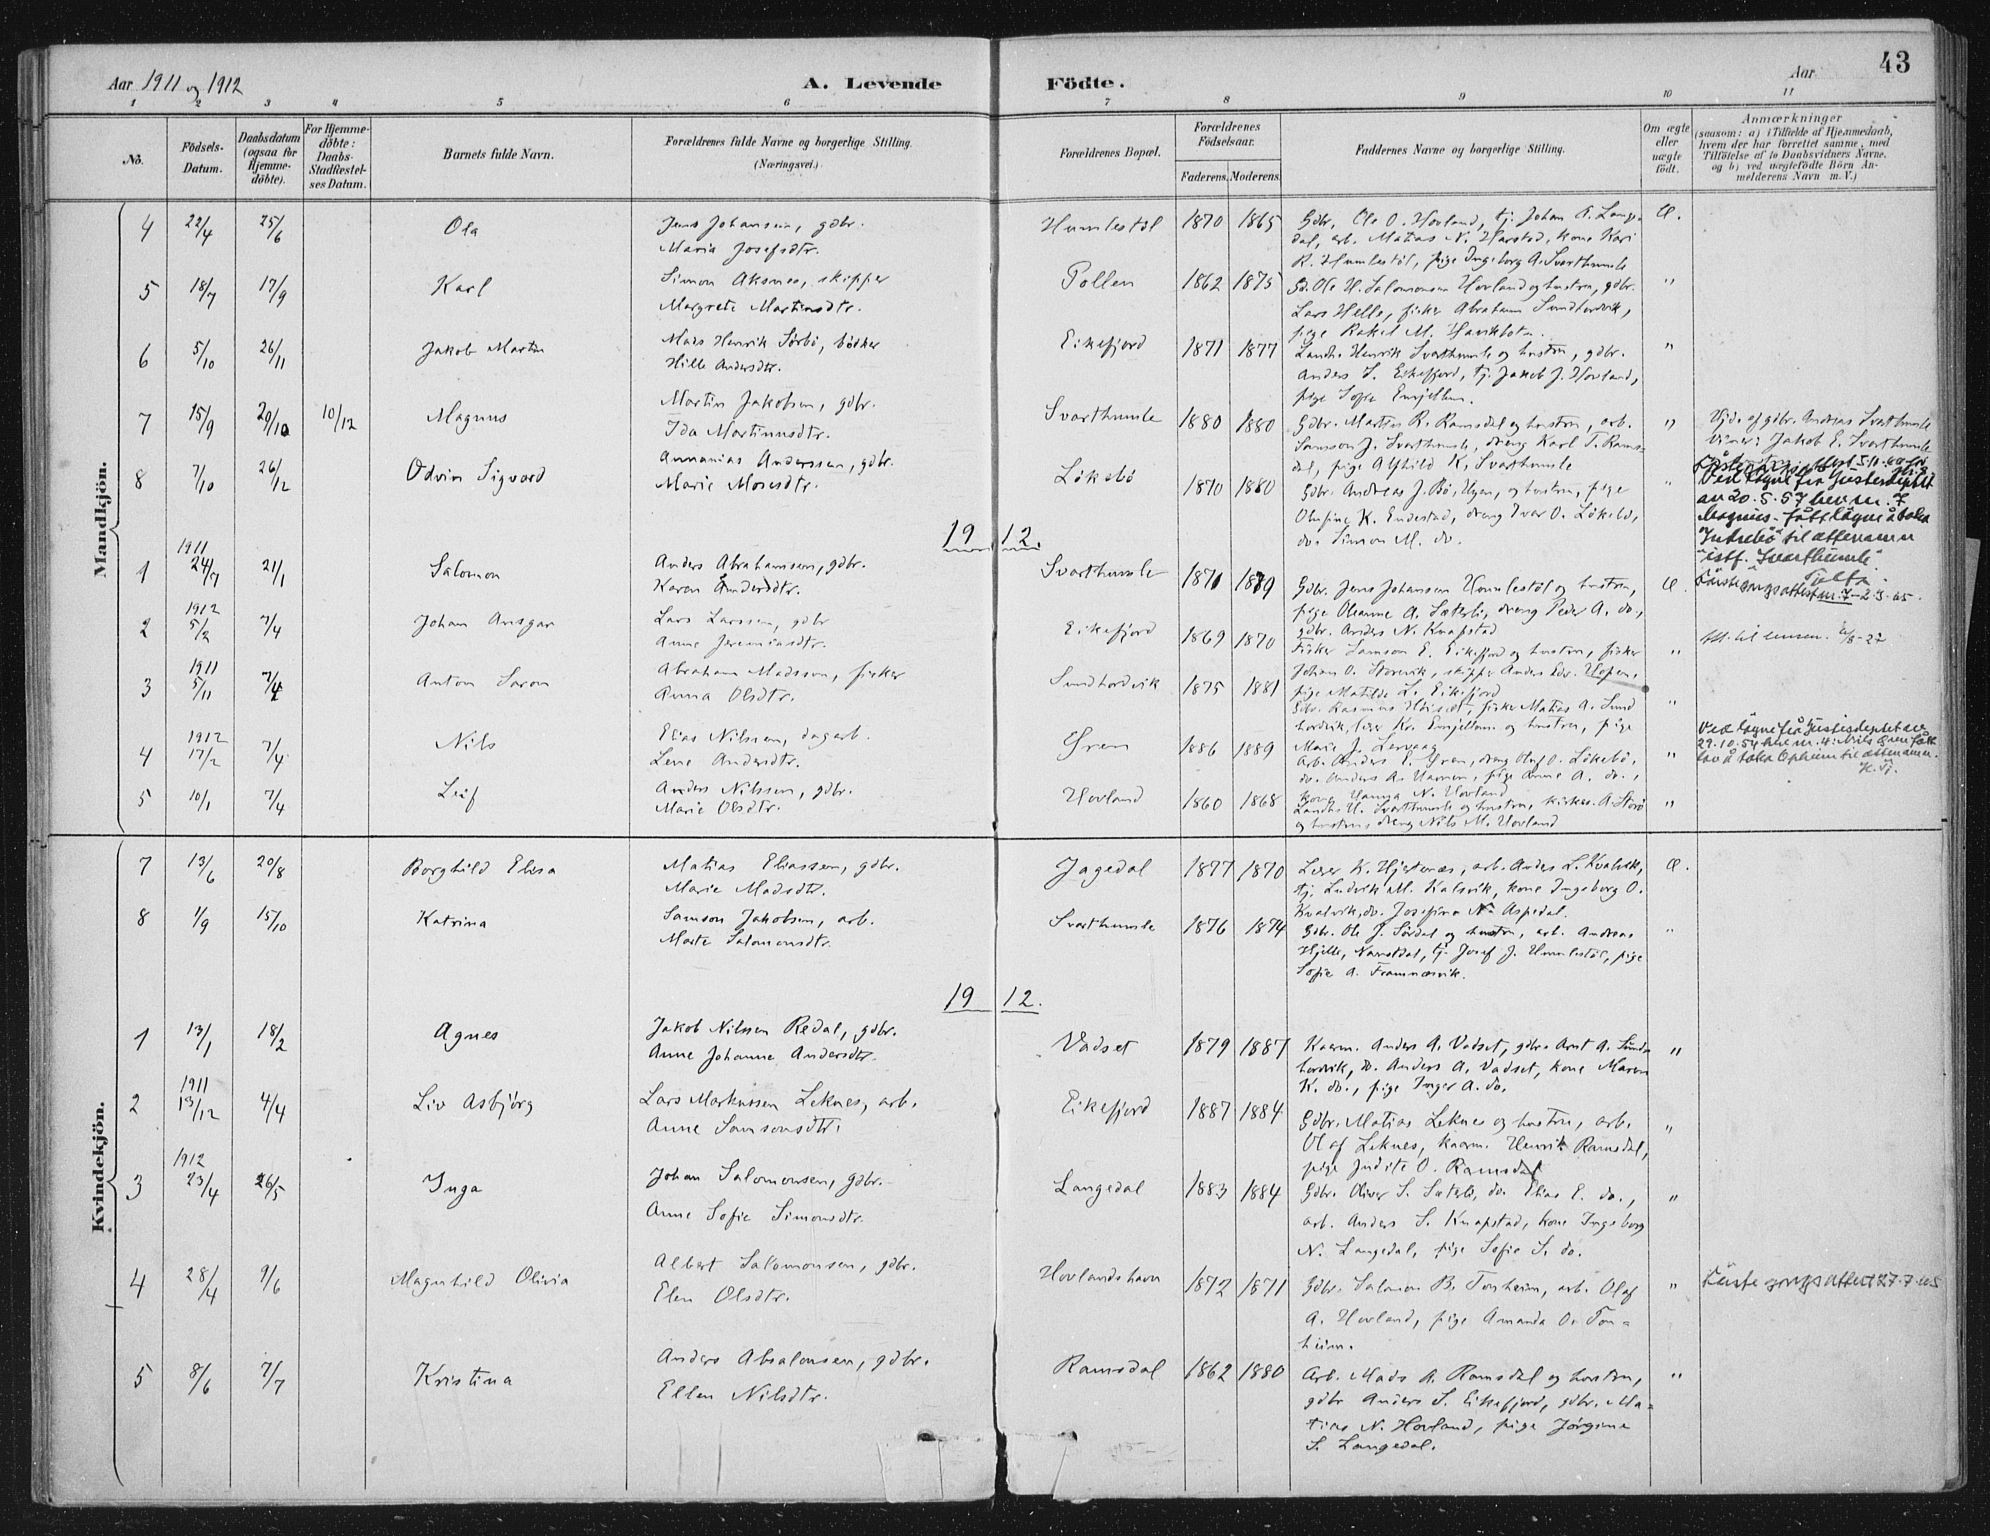 Aar 1911 og 1912 A. Levende Födte. Aar 43
1 2 3 4 5 6 7 8 9 10 11
No. Födsels-Datum. Daabsdatum (ogsaa for Hjemme-döbte). For Hjemme-döbte: Daabs-Stadfæstel-ses Datum. Barnets fulde Navn. Forældrenes fulde Navne og borgerlige Stilling. (Næringsvei.) Forældrenes Bopæl. Forældrenes Födselsaar. Faderens. Moderens. Faddernes Navne og borgerlige Stilling. Om ægte eller uægte födt. Anmærkninger (saasom: a) i Tilfælde af Hjemmedaab, hvem der har forrettet samme, med Tilföielse af to Daabsvidners Navne, og b) ved uægtefödte Börn An-melderens Navn m. V.)
Mandkjön.
4 22/4 25/6 Ola Jens Johansen, gdbr. Humlestöl 1870 1865 Gdbr. Ole O. Hovland, tj. Johan A. Lange- Æ.
Maria Josefsdtr. dal, arb. Matias N. Harstad, kone Kari
R. Humlestöl, pige Ingeborg A. Svarthumle
5 18/7 17/9 Karl Simon Aksnes, skipper Pollen 1862 1875 Gd. Ole H. Salomonsen Hovland og hustru, gdbr. "
Margrete Martinsdtr. Lars Helle, fisker Abraham Sundhordvik,
pige Rakel M.
6 5/10 26/11 Jakob Martin Mads Henrik Sörbö, bödker Eikefjord 1871 1877 Landh. Henrik Svarthumle og hustru, gdbr. "
Hille Andersdtr. Anders S. Eikefjord, tj. Jakob J. Hovland,
pige Sofie
7 15/9 29/10 10/12 Magnus Martin Jakobsen, gdbr. Svarthumle 1880 1880 Gdbr. Martin R. Ramsdal og hustru, arb. " Hjd. af gdbr. Andreas Svarthumle
Ida Martinusdtr. Samson J. Svarthumle, dreng Karl T. Rams- Jakob E. Svarthumle
dal, pige Alfhild K. Svarthumle
8 7/10 26/12 Odvin Sigvard Annanias Anderssen, gdbr. Lökebö 1870 1880 Gdbr. Andreas J. Bö, og hustru, pige " Ved løyve frå Justisdeptet
Marie Mosesdtr. Olufine K. Endestad, dreng Iver O. Lökebö, av 20.5.57 hev nr. 7
do. Simon M. do. Magnus fått løyve å taka
1912. til ættenamn
istf. Svarthumle.
1 1911 24/7 21/1 Salomon Anders Abrahamsen, gdbr. Svarthumle 1871 1879 Gdbr. Jens Johansen Humlestöl og hustru, Æ.
Karen Andersdtr. pige Oleanne A. Sæterli, dreng Peder A. do.,
gdbr. Anders N. Knapstad
2 1912 5/2 7/4 Johan Ansgar Lars Larssen, gdbr Eikefjord 1869 1870 Fisker Samson E. Eikefjord og hustru, fisker "
Anne Jeremiasdtr. Johan O. Storevik, skipper Anders Edv. Hopen,
pige Matilde L. Eikefjord
3 1911 5/11 7/4 Anton Saron Abraham Madssen, fisker Sundhordvik 1875 1881 Gdbr. Rasmus fisker Matias A. Sund "
Anna Olsdtr. hordvik, og hustru, pige
Marie J. Lervaag
4 1912 17/2 7/4 Nils Elias Nilssen, dagarb. Gren 1886 1889 Arb. Anders Gren, dreng Oluf O. Lökebö, " Ved løyve frå Justisdeptet av
Lene Andersdtr. do. Anders A. pige Anne A. do., 29.10.54 hev nr. 4: Nils Gren fått
lov å taka Opheim til ættenamn.
kone Hanna N. Hovland
5 10/1 7/4 Leif Anders Nilssen, gdbr. Hovland 1860 1868 Landh. H. Svarthumle og hustru, A. Storö "
Marie Olsdtr. og hustru, dreng Nils M. Hovland
Kvindekjön.
7 13/6 20/8 Borghild Elisa Matias Eliassen, gdbr. Jagedal 1877 1870 Læser K. Hjertenæs, arb. Anders L. Kvalvik, Æ.
Marie Madsdtr. tj. Ludvik M. Kalsvik, kone Ingeborg O.
Kvalvik, do. Josefine N. Aspedal.
8 1/9 15/10 Katrina Samson Jakobsen, arb. Svarthumle 1876 1874 Gdbr. Ole J. Sördal og hustru, arb. Andreas "
Marte Salomonsdtr. Hjelle, Naustdal, tj. Josef J. Humlestöl, pige
Sofie A. Framnæsvik.
1912.
1 13/1 18/2 Agnes Jakob Nilssen Redal, gdbr. Vadset 1879 1887 Kaarm. Anders A. Vadset, gdbr. Arnt A. Sund- "
Anne Johanne Andersdtr. hordvik, do. Anders A. Vadset, kone Maren
K. do., pige Inger A. do.
2 1911 13/12 4/4 Liv Asbjörg Lars Markussen Leknes, arb. Eikefjord 1887 1884 Gdbr. Matias Leknes og hustru, arb. "
Anne Samsonsdtr. Olaf Leknes, kaarm. Henrik Ramsdal,
pige Judite O. Ramsdal
3 1912 23/4 26/5 Inga Johan Salomonsen, gdbr. Langedal 1883 1884 Gdbr. Oliver S. Sæterli, do. Elias E. do., "
Anne Sofie Simonsdtr. arb. Anders S. Knapstad, kone Ingeborg
N. Langedal, pige Sofie S. do.
4 28/4 9/6 Magnhild Olivia Albert Salomonsen, gdbr. Hovlandshavn 1872 1871 Gdbr. Salomon B. Tonheim, arb. Olaf "
Elen Olsdtr. A. Hovland, pige Amanda O. Ton-
heim.
5 8/6 7/7 Kristina Anders Absalonsen, gdbr. Ramsdal 1862 1880 Arb. Mads A. Ramsdal og hustru, "
Ellen Nilsdtr. gdbr Anders S. Eikefjord, gdbr. Ma-
tias N. Hovland, pige Jörgine
S. Langedal.